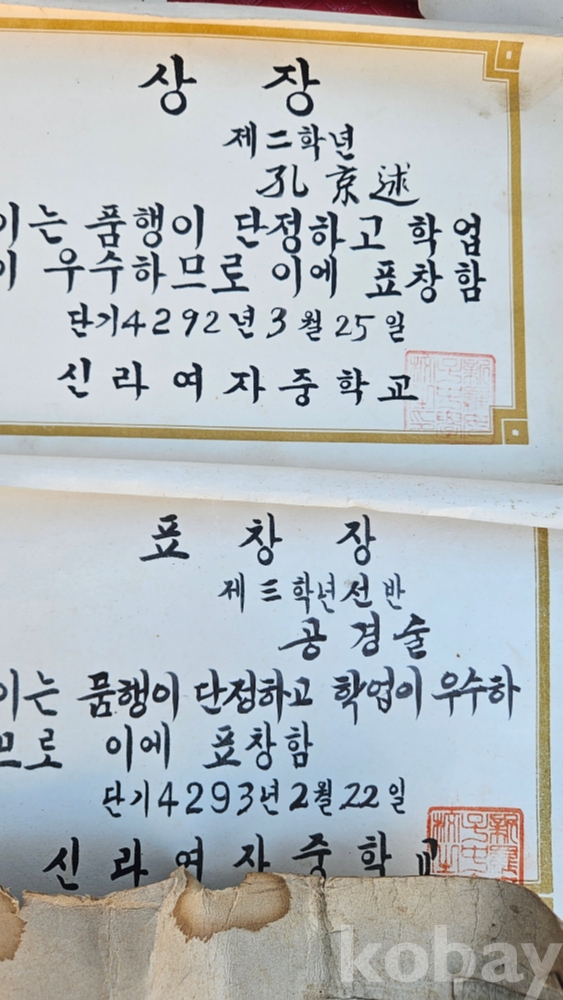 상 장
제二학년
孔京述
이는 품행이 단정하고 학업
이 우수하므로 이에 표창함
단기4292년 3월 25일
신라여자중학교
표 창 장
제三학년선반
공경술
이는 품행이 단정하고 학업이 우수하
므로 이에 표창함
단기4293년 2월 22일
신라여자중학교
kobay